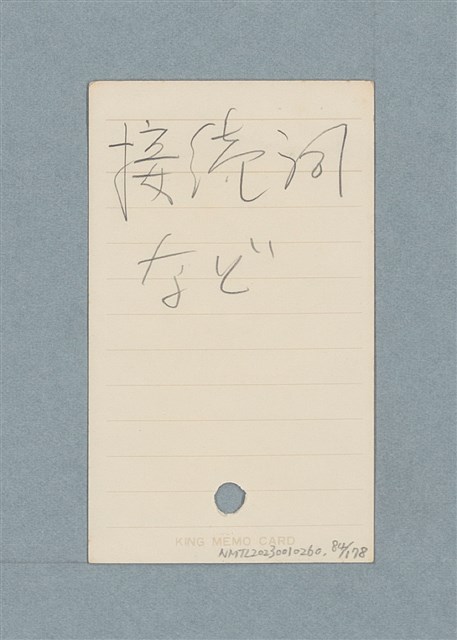 接続詞
など
KING MEMO CARD
NMTL20230010260, 84/178